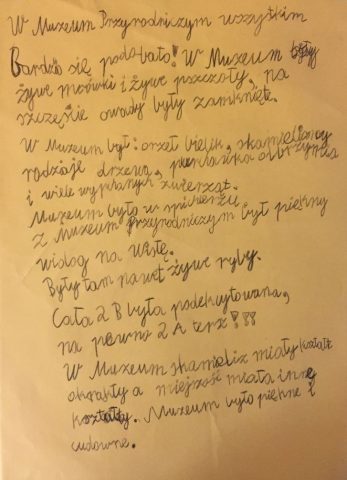 W Muzeum Przyrodniczym wszystkim
Bardzo się podobało! W Muzeum były
żywe mrówki i żywe pszczoły, na
szczęście owady były zamknięte.
W Muzeum był: orzeł bielik, skamieliny
rodzaje drzewa, purchawka olbrzymia
i wiele wypchanych zwierząt.
Muzeum było w spichlerzu.
Z Muzeum Przyrodniczym był piękny
widog na Wisłę.
Były tam nawet żywe ryby.
Cała 2 B była podekscytowana,
na pewno 2 A też!!!
W Muzeum skamieliz miały kształt
okrągły a miejszość miała inne
kształty. Muzeum było piękne i
cudowne.